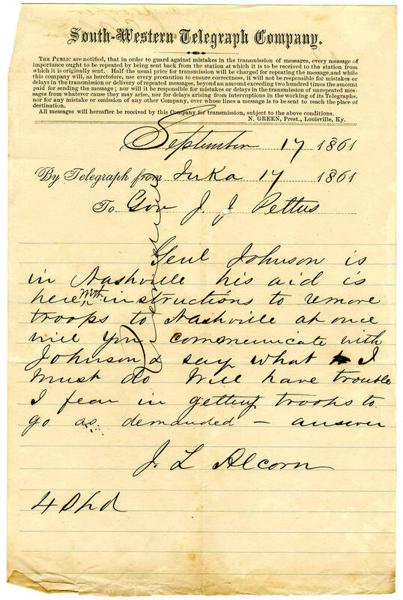 South-Western Telegraph Company.
THE PUBLIC are notified, that in order to guard against mistakes in the transmission of messages, every message of
importance ought to be repeated by being sent back from the station at which it is to be received to the station from
which it is originally sent. Half the usual price for transmission will be charged for repeating the message, and while
this company will, as heretofore, use every precaution to ensure correctness, it will not be responsible for mistakes or
delays in the transmission or delivery of repeated messages, beyond an amount exceeding two hundred times the amount
paid for sending the message; nor will it be responsible for mistakes or delays in the transmission of unrepeated mes-
sages from whatever cause they may arise, nor for delays arising from interruptions in the working of its Telegraphs,
nor for any mistake or omission of any other Company, over whose lines a message is to be sent to reach the place of
destination.
All messages will hereafter be received by this Company for transmission, subject to the above conditions.
N. GREEN, Prest., Louisville, Ky.
September 17 1861
By Telegraph from Iuka 17 1861
To Gov J. J Pettus
Genl Johnson is
in Nashville his aid is
here with instructions to remove
troops to Nashville at once
will you communicate with
Johnson & say what I
must do Will have trouble
I fear in getting troops to
go as demanded – answer
J. L Alcorn